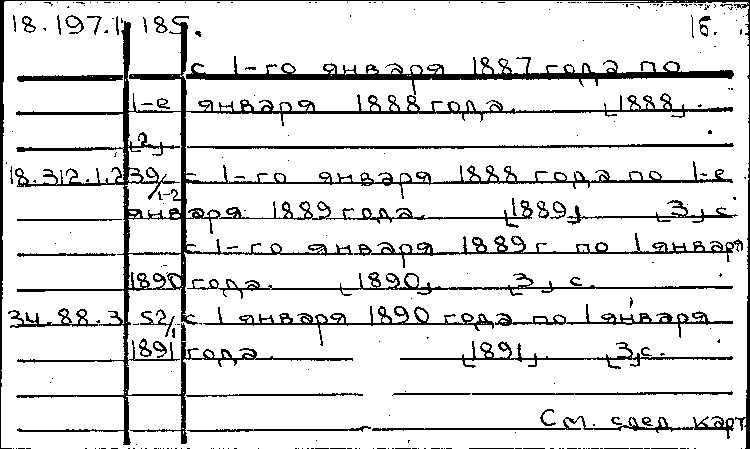 18.197.1 185. 16.
с 1-го января 1887 года по
1-е января 1888 года. [1888].
[2]
18.312.1.2 39/1-2 с 1-го января 1888 года по 1-е
января 1889 года. [1889] [3] с
с 1-го января 1889 г. по 1 января
1890 года. [1890]. [3] с.
34.88.3 52/1 с 1 января 1890 года по 1 января
1891 года. [1891]. [3] с.
См. след карт